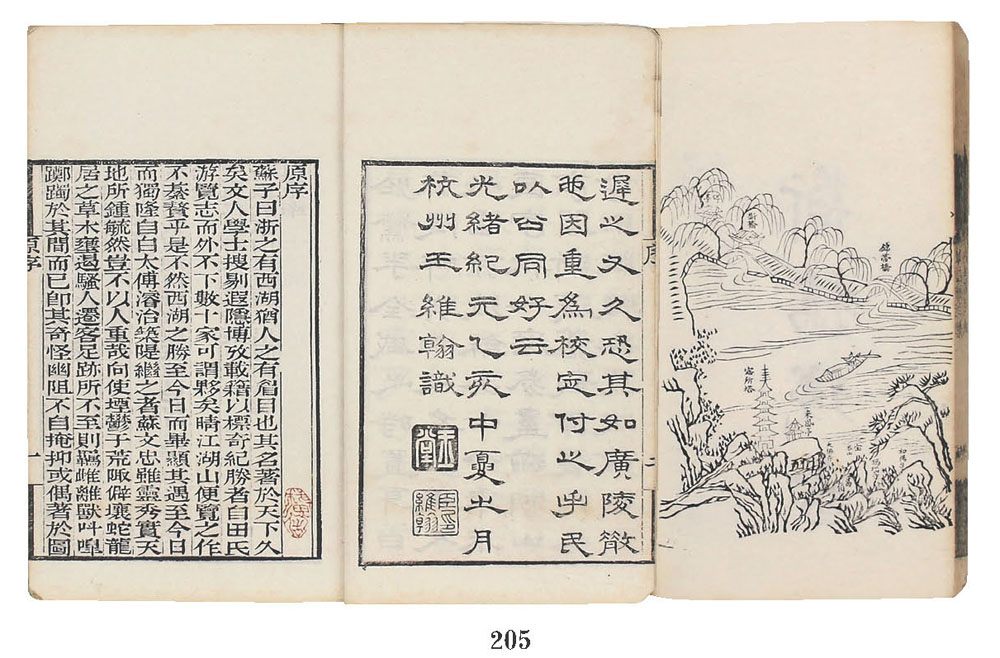 錦帶橋
寶所塔
遲之又久恐其如廣陵散
也因重爲校定付之手民
以公同好云
光緒紀元乙亥中夏之月
杭州王維翰識
序
原序
蘇子曰浙之有西湖猶人之有眉目也其名著於天下久
矣文人學士搜剔遐隱博攷載籍以標奇紀勝者自田氏
游覽志而外不下數十家可謂夥矣晴江湖山便覽之作
不綦贅乎是不然西湖之勝至今日而畢顯其遇至今日
而獨隆自白太傅濬治築隄繼之者蘇文忠雖靈秀實天
地所鍾毓然豈不以人重哉向使堙鬱于荒陬僻壤蛇龍
居之草木壅遏騷人遷客足跡所不至則羈雌離獸叫嘷
躑躅於其間而已卽其奇怪幽阻不自掩抑或偶著於圖
原序
一
205